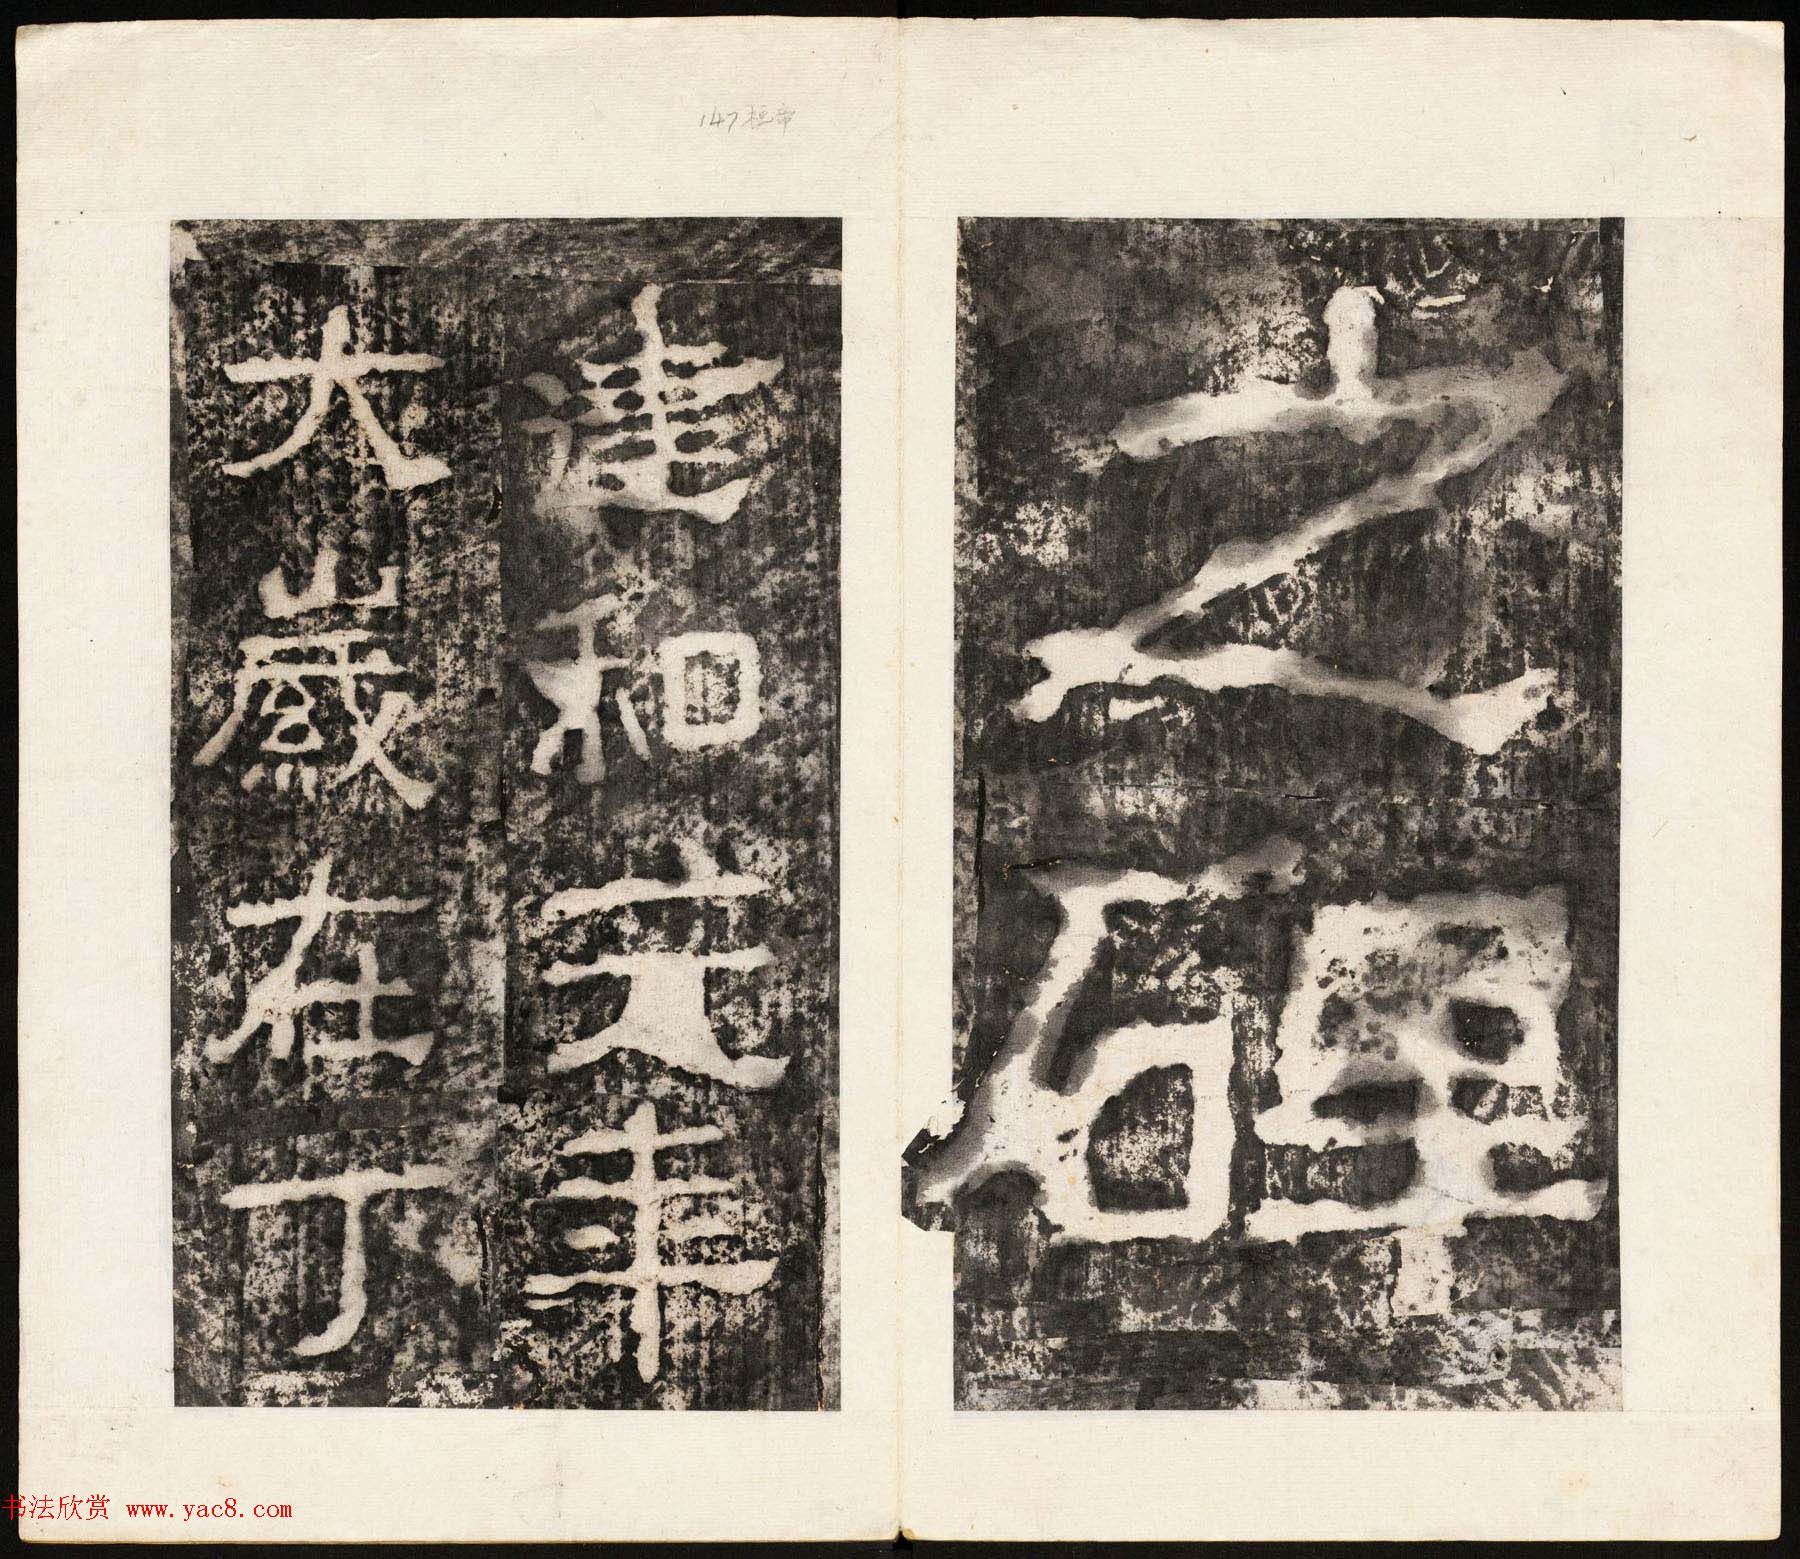 147桓帝
之碑
建和元年
大歲在丁
书法欣赏 www.yac8.com